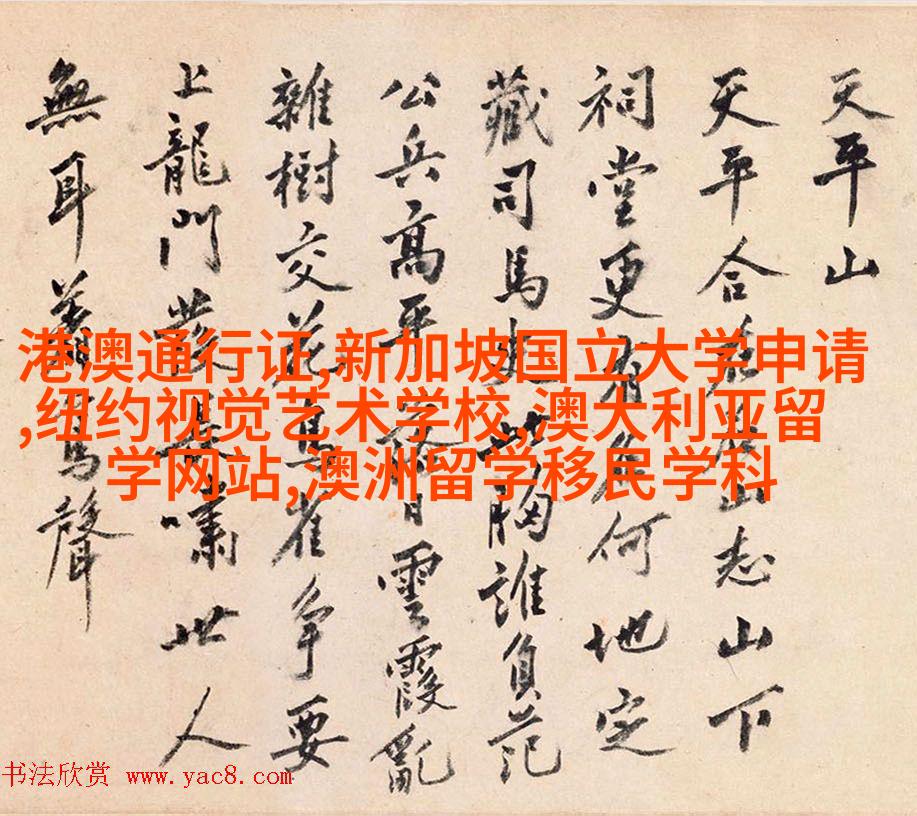 天平山
天平合山志山下
祠堂更何地定
藏司馬史胸誰負范
公兵高平日雲霞亂
雜樹交花鳥雀爭要
上龍門嘯世人
無耳聲
港澳通行证,新加坡国立大学申请
,纽约视觉艺术学校,澳大利亚留
学网站,澳洲留学移民学科
书法欣赏 www.yac8.com